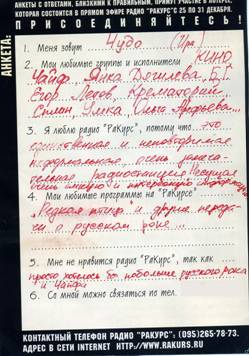 АНКЕТЫ С ОТВЕТАМИ, БЛИЗКИМИ К ПРАВИЛЬНЫМ, ПРИМУТ УЧАСТИЕ В ЛОТЕРЕЕ,
КОТОРАЯ СОСТОИТСЯ В ПРЯМОМ ЭФИРЕ РАДИО "РАКУРС" С 25 ПО 31 ДЕКАБРЯ.
ПРИСОЕДИНЯЙТЕСЬ!
АНКЕТА:
1. Меня зовут Чудо (Ира)
2. Мои любимые группы и исполнители КИНО
Чайф, Янка Дягилева, Б.Г.
Егор Летов, Крематорий
Сплин, Умка, Ольга Арефьева...
3. Я люблю радио "РаКурс", потому что это
единственная и неповторимая
неформальная, очень
радиостанция несущая
очень и интересную информацию
4. Мои любимые программы на "РаКурсе"
"Редкая птица" и другие передачи
о русском роке...
5. Мне не нравится радио "РаКурс", так как
просто хотелось бы побольше русского рока
и Чайфа
6. Со мной можно связаться по тел.
КОНТАКТНЫЙ ТЕЛЕФОН РАДИО "РАКУРС": (095)265-78-73.
АДРЕС В СЕТИ INTERNET HTTP://WWW.RAKURS.RU